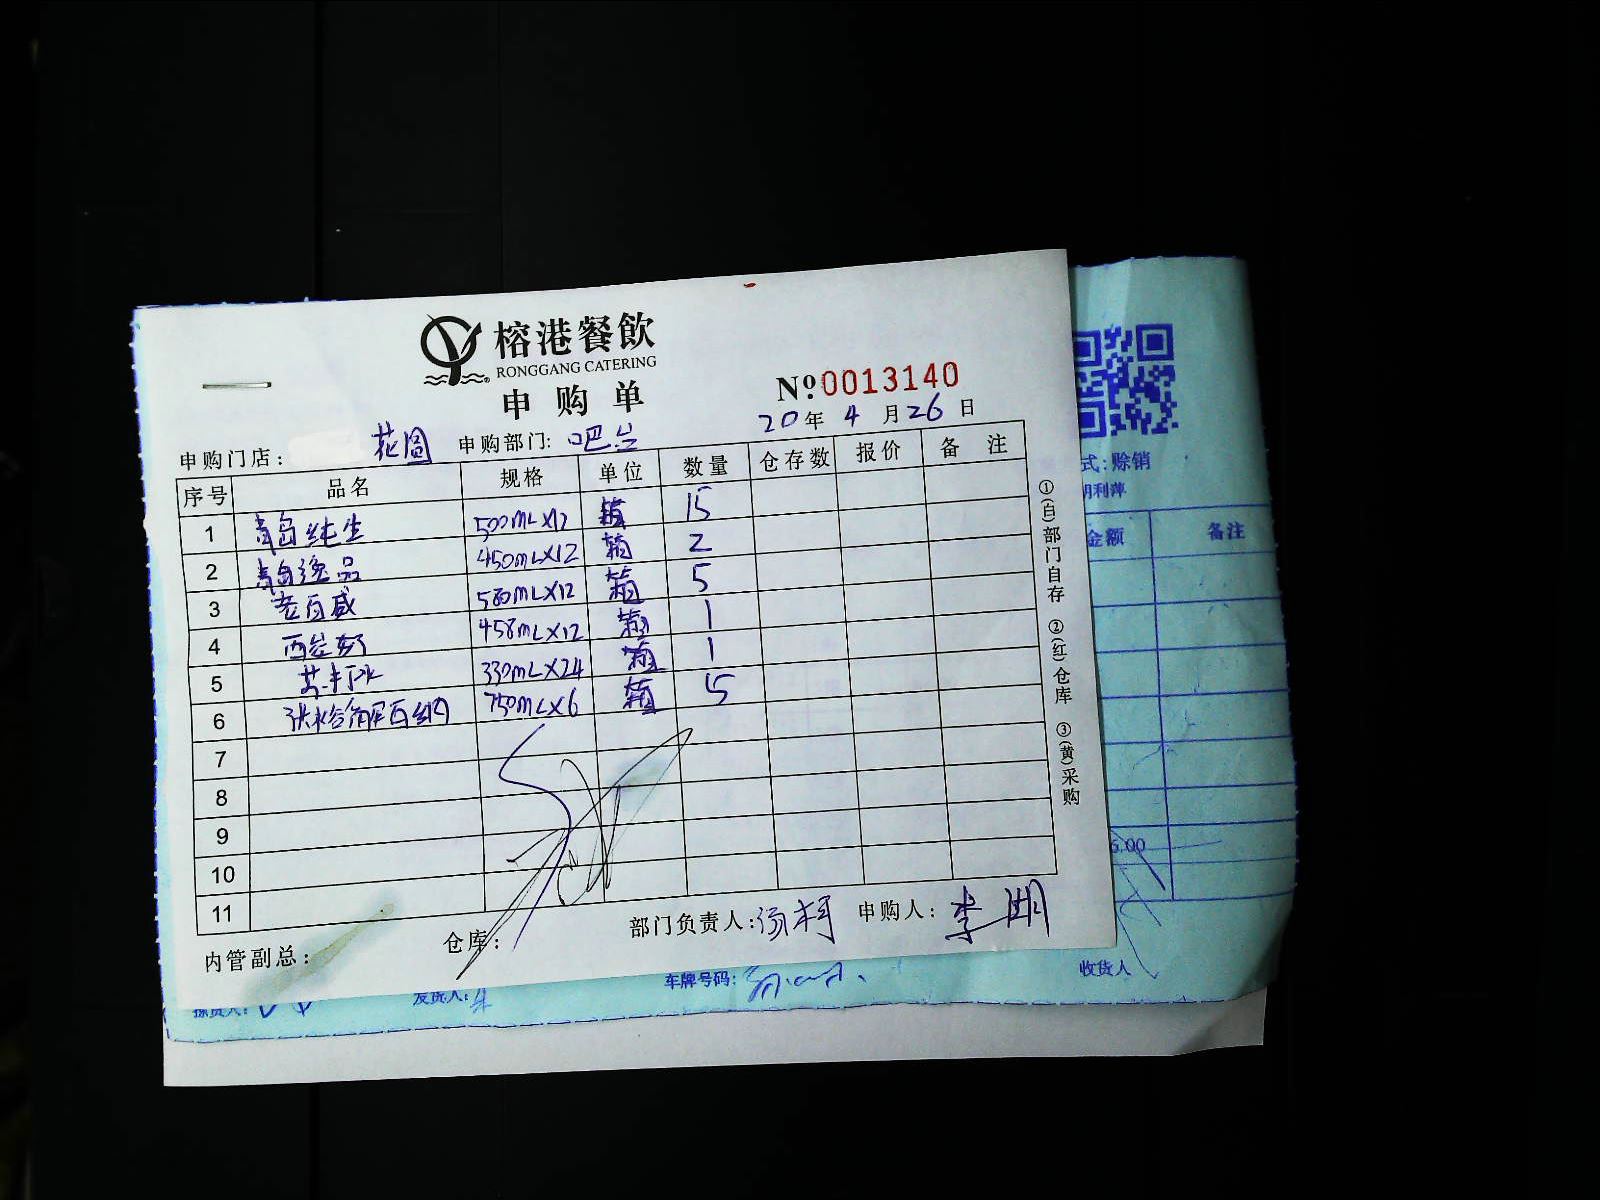 榕港餐飲
RONGGANG CATERING
申购单
№:0013140
20年4月26日
申购门店: 花園 申购部门: 吧台
序号 品名 规格 单位 数量 仓存数 报价 备注
1 青岛纯生 500mL×12 箱 15
2 青岛逸品 450mL×12 箱 2
3 老百威 580mL×12 箱 5
4 458mL×12 箱 1
5 330mL×24 箱 1
6 张裕解百纳 750mL×6 箱 5
7
8
9
10
11
内管副总: 仓库: 部门负责人: 申购人: 李湖
①(白)部门自存 ②(红)仓库 ③(黄)采购
式:赊销
胡利萍
金额 备注
6.00
发货人: 车牌号码: 收货人